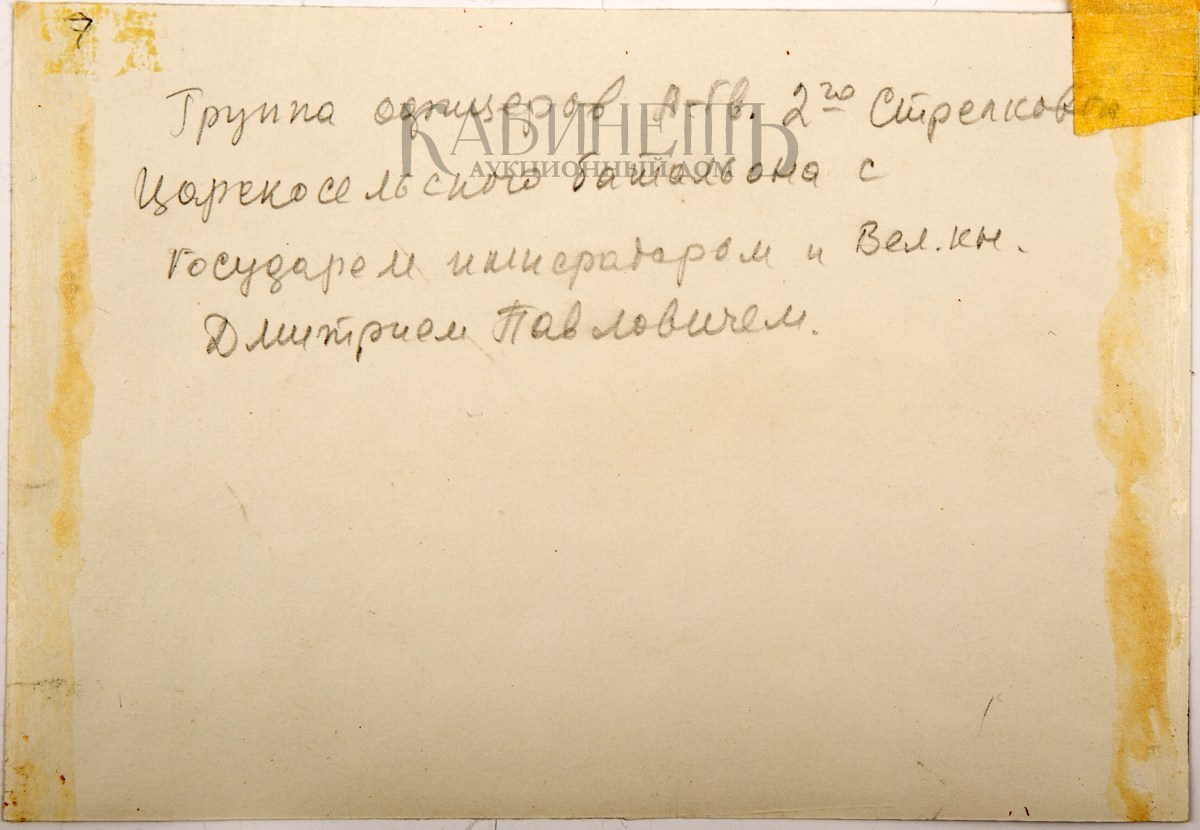 7
Группа офицеров Л-Гв. 2го Стрелков
КАБИНЕТЪ
АУКЦИОННЫЙ ДОМ
Царскосельского батальона с
государем императором и Вел. кн.
Дмитрием Павловичем.